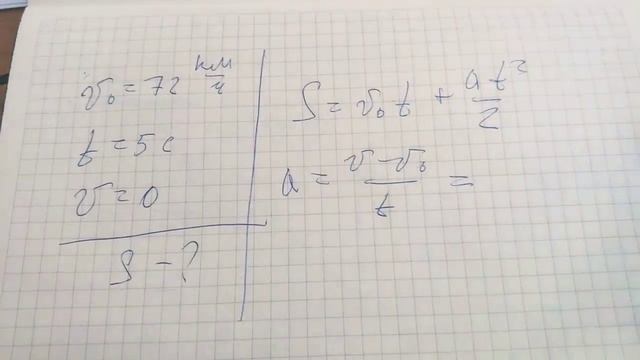 v₀ = 72 км/ч
t = 5 с
v = 0
S – ?
S = v₀ t + at²/2
a = v – v₀/t =